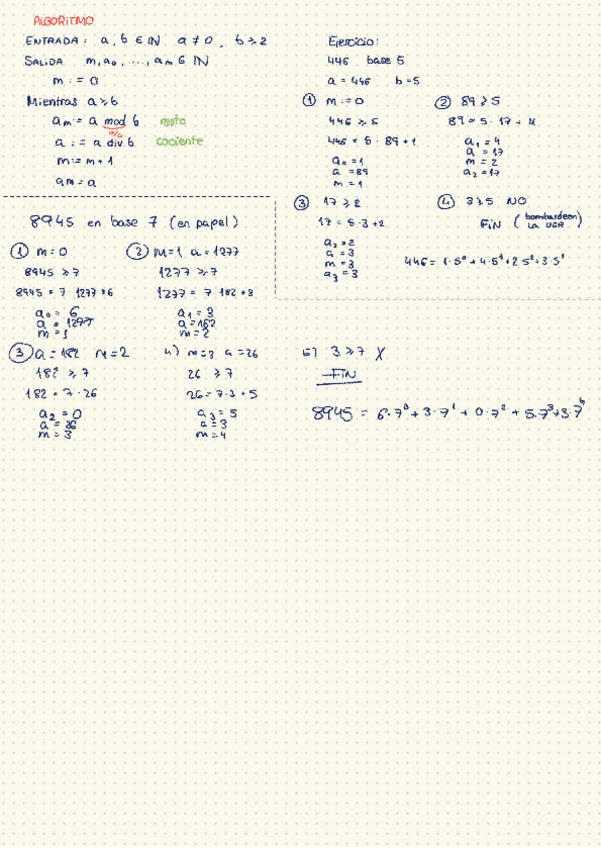 ALGORITMO
ENTRADA: a, b ∈ ℕ a ≠ 0, b ≥ 2
SALIDA m, a₀, ..., aₘ ∈ ℕ
m := 0
Mientras a ≥ b
aₘ := a mod b resto
%
a := a div b cociente
m := m + 1
aₘ = a
Ejercicio:
446 base 5
a = 446 b = 5
① m := 0
446 ≥ 5
446 = 5 · 89 + 1
a₀ = 1
a = 89
m = 1
② 89 ≥ 5
89 = 5 · 17 + 4
a₁ = 4
a = 17
m = 2
a₂ = 17
③ 17 ≥ 2
17 = 5 · 3 + 2
a₂ = 2
a = 3
m = 3
a₃ = 3
④ 3 ≥ 5 NO
FIN (bombardeen LA UGR)
446 = 1·5⁰ + 4·5¹ + 2·5² + 3·5³
8945 en base 7 (en papel)
① m = 0
8945 ≥ 7
8945 = 7 · 1277 + 6
a₀ = 6
a = 1277
m = 1
② m = 1 a = 1277
1277 ≥ 7
1277 = 7 · 182 + 3
a₁ = 3
a = 182
m = 2
③ a = 182 m = 2
182 ≥ 7
182 = 7 · 26
a₂ = 0
a = 26
m = 3
4) m = 3 a = 26
26 ≥ 7
26 = 7·3 + 5
a₃ = 5
a = 3
m = 4
5) 3 ≥ 7 X
FIN
8945 = 6·7⁰ + 3·7¹ + 0·7² + 5·7³ + 3·7⁴